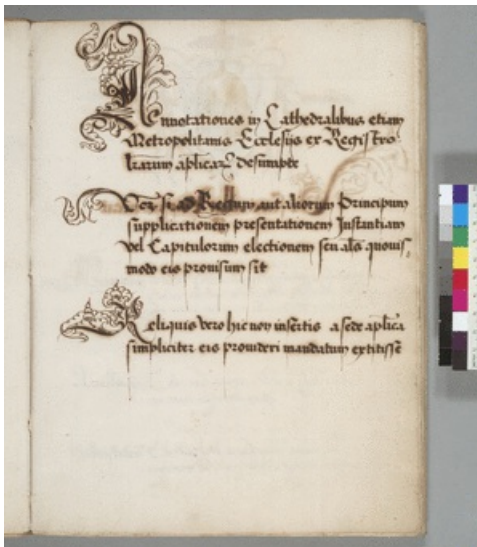 Annotationes in Cathedralibus etiam
Metropolitanis Ecclesijs ex Registro
lrarum aplicar̃ desumpte
si ad Regum aut aliorum Principum
supplicationem presentationem Instantiam
vel Capitulorum electionem seu als quouis
modo eis prouisum sit
Reliquis vero hic non insertis a sede aplica
simpliciter eis prouideri mandatum extitisse